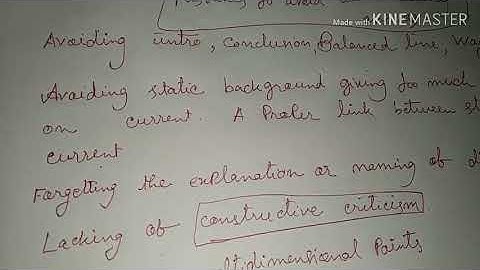 to avoid
Made with KINEMASTER
Avoiding intro, Conclusion, Balanced line, Way
Avaiding static background giving too much
on current. A Proler link between st
current
Fargetting the explanation or naming of d
Lacking of constructive criticism
tidimensional Points